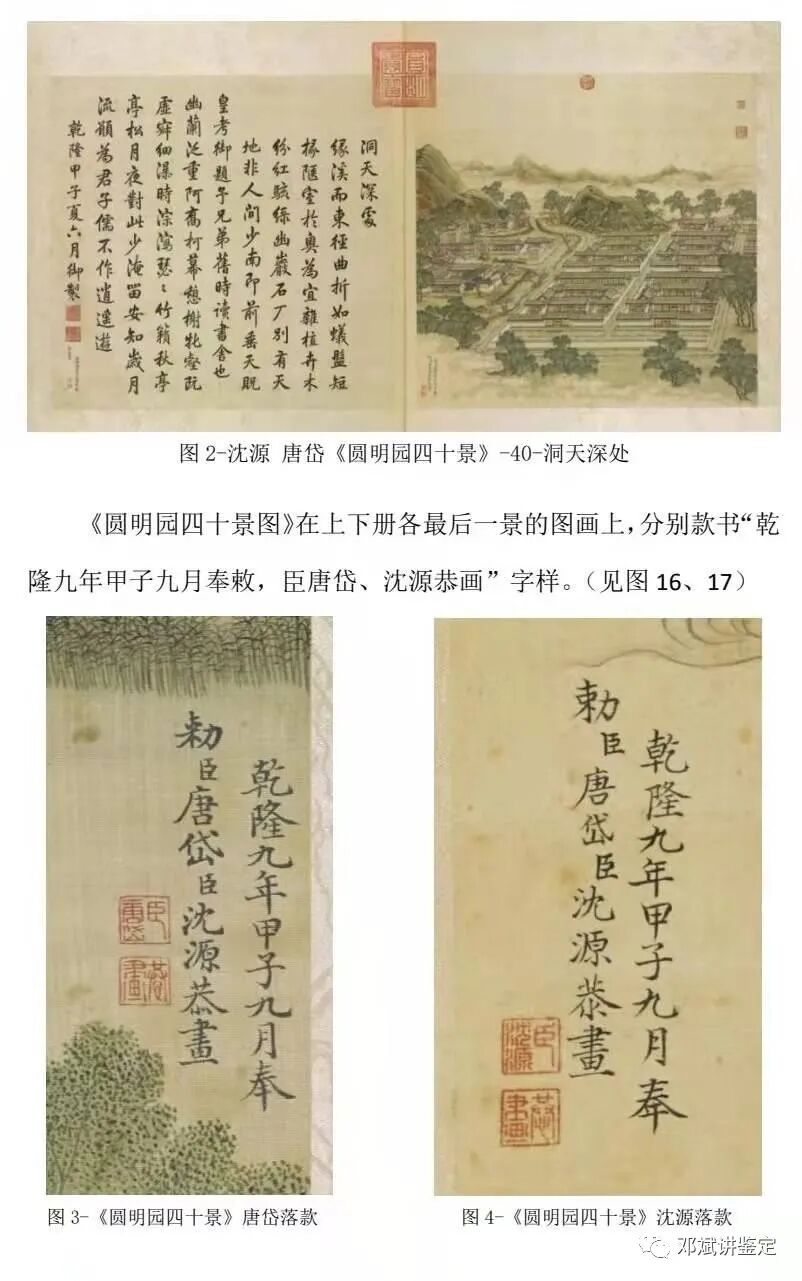 洞天深處
緣溪而東徑曲折如蟻盤短
椽陋室於奧為宜雜植卉木
紛紅駭綠幽巖石厂別有天
地非人間少南即前垂天貺
皇考御題予兄弟舊時讀書舍也
幽蘭泛重阿喬柯幕憩榭牝壑既
虛寂細瀑時淙瀉瑟〻竹籟秋亭
亭松月夜對此少淹留安知歲月
流願為君子儒不作逍遙遊
乾隆甲子夏六月御製
图 2-沈源 唐岱《圆明园四十景》-40-洞天深处
《圆明园四十景图》在上下册各最后一景的图画上，分别款书“乾
隆九年甲子九月奉敕，臣唐岱、沈源恭画”字样。（见图 16、17）
乾隆九年甲子九月奉
勅臣唐岱臣沈源恭畫
臣唐岱
恭畫
乾隆九年甲子九月奉
勅臣唐岱臣沈源恭畫
臣沈源
恭畫
图 3-《圆明园四十景》唐岱落款
图 4-《圆明园四十景》沈源落款
邓斌讲鉴定